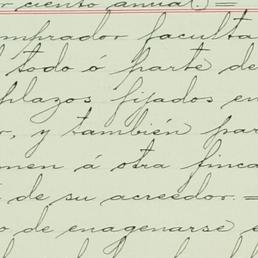 ciento anual) =
mprador faculta
todo ó parte de
plazos fijados en
, y también par
men á otra finca
de su acreedor. =
o de enagenarse e